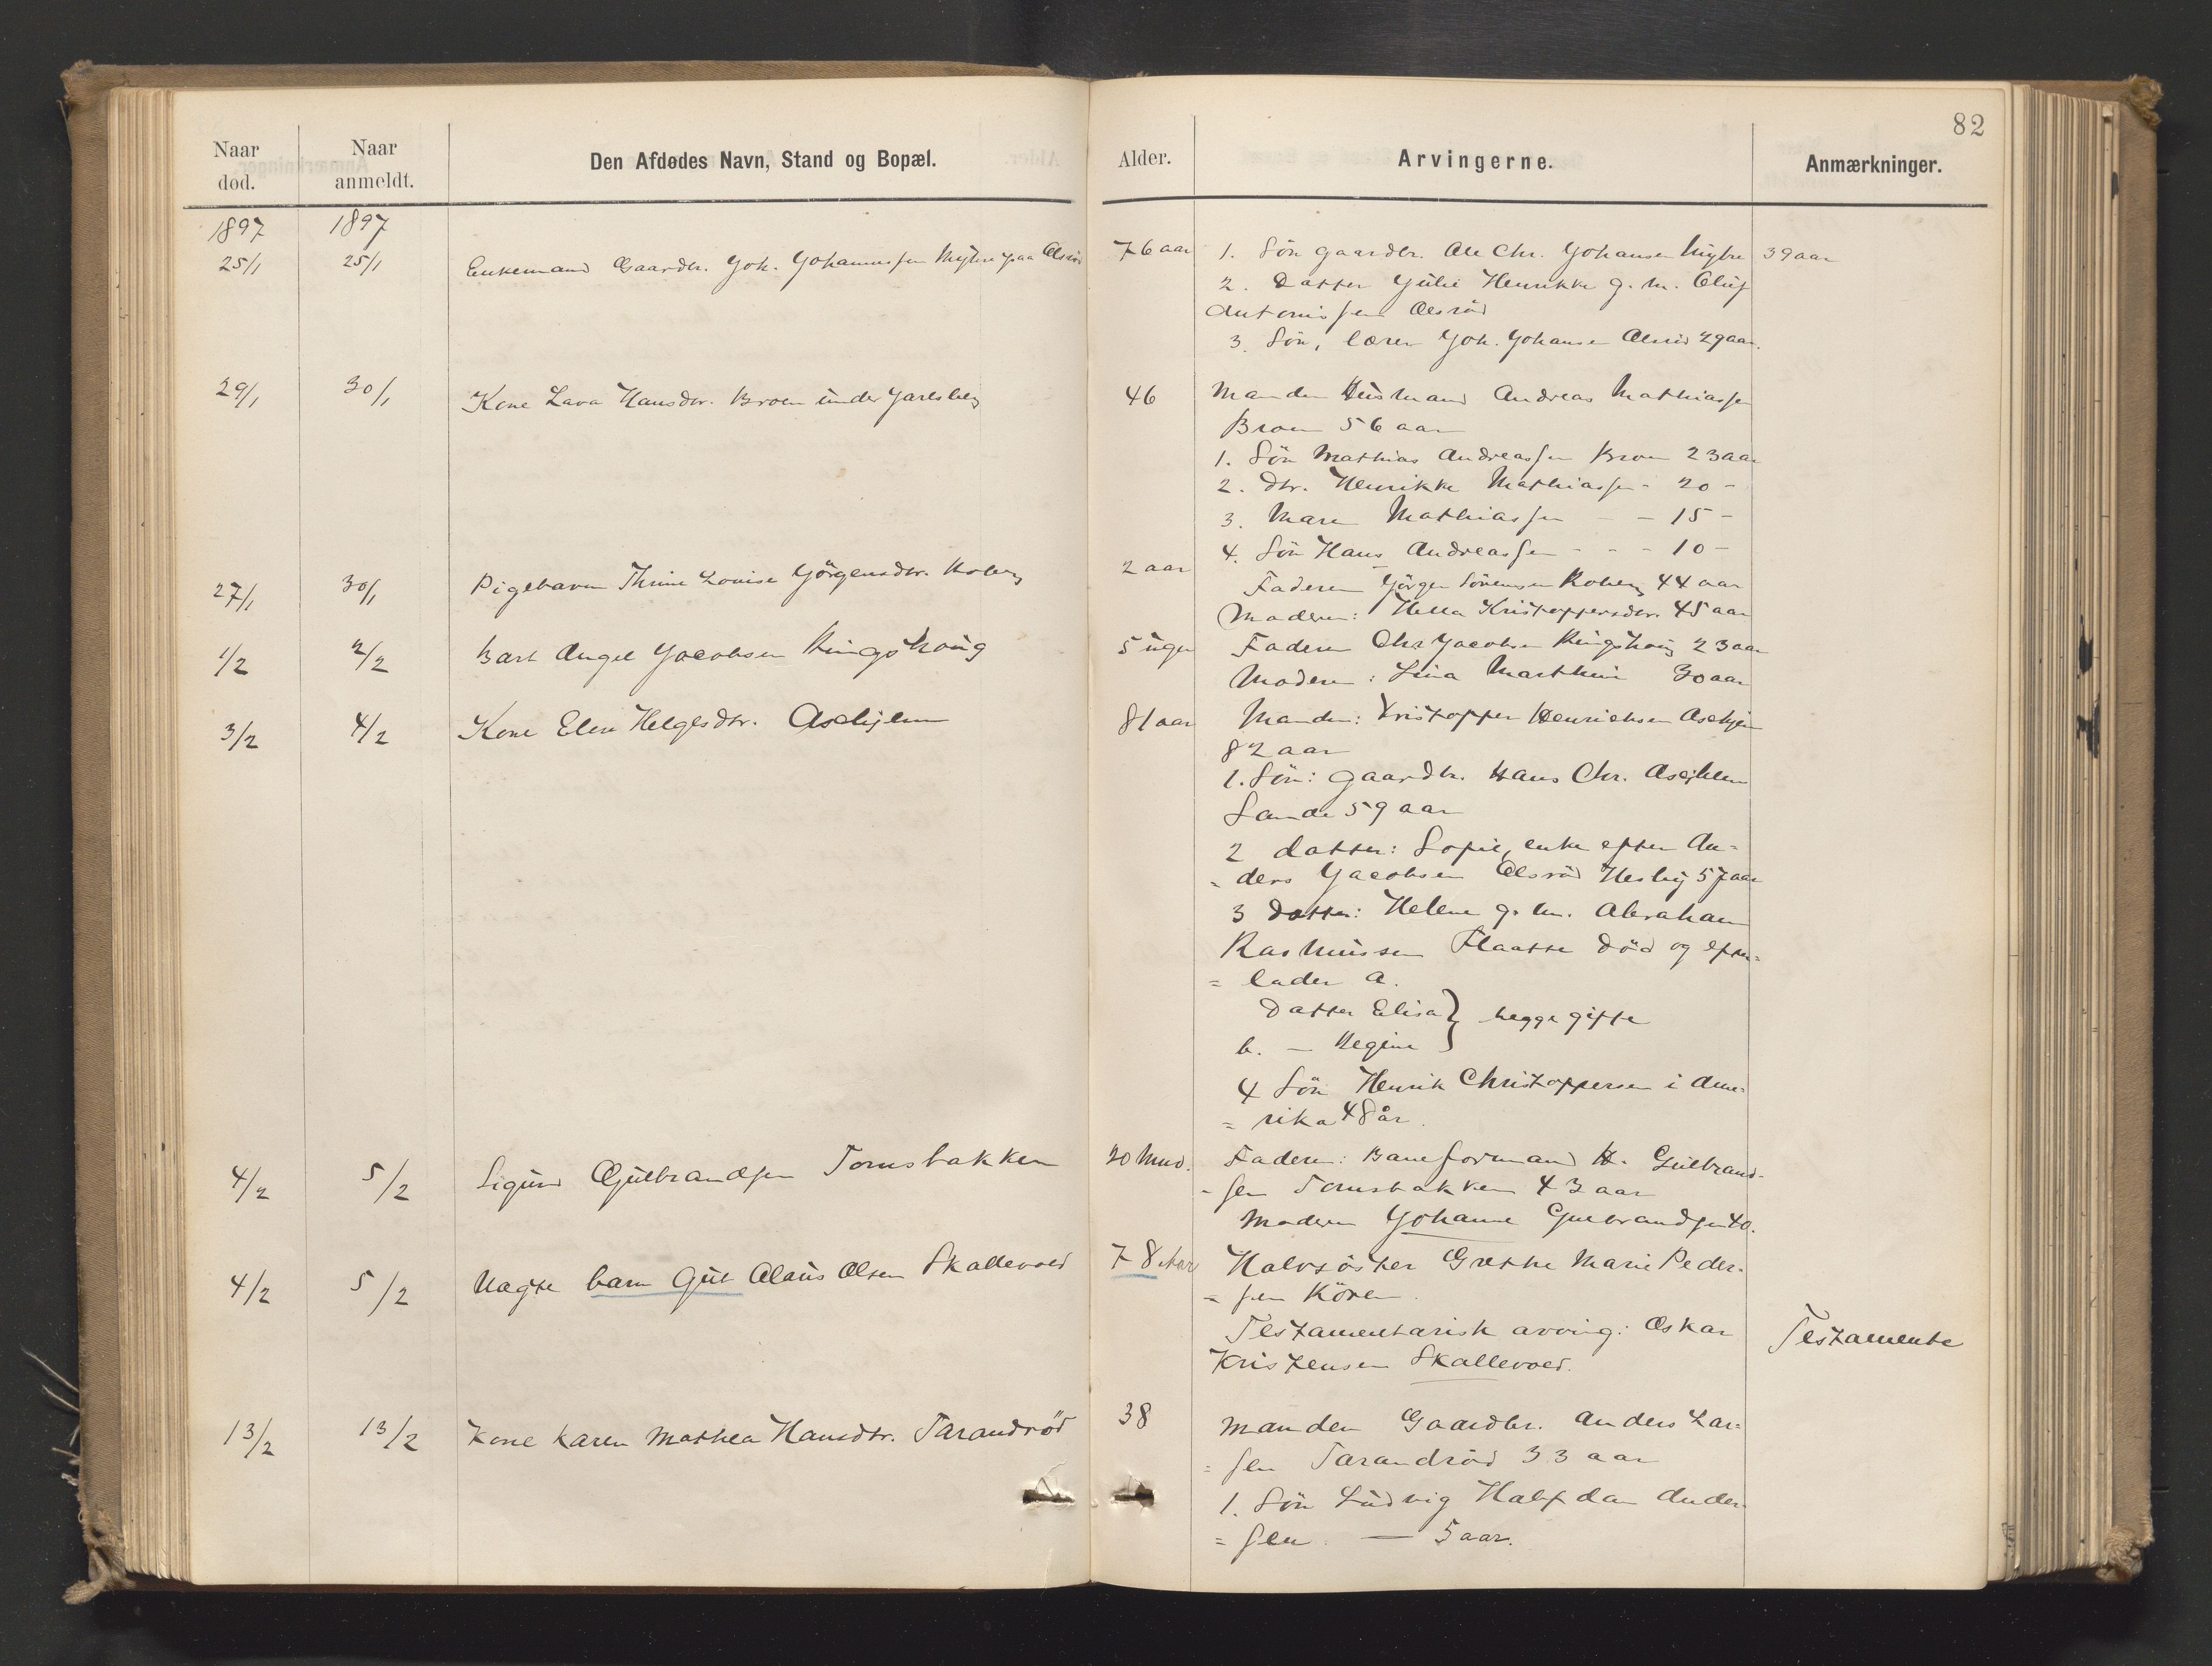 82
Naar død.
Naar anmeldt.
Den Afdødes Navn, Stand og Bopæl.
Alder.
Arvingerne.
Anmærkninger.
1897 1897
25/1 25/1 Enkemand Gaardbr. Joh. Johannessen Myhre paa Olsröd 76 aar
1. Sön gaardbr. Ole Chr. Johansen Myhre 39 aar
2. Datter Julie Henrikke g. m. Oluf
Antonissen Olsröd
3. Sön, lærer Joh. Johansen Olsröd 29 aar.
29/1 30/1 Kone Lava Hansdtr. Broen under Jarlsberg 46
Manden Husmand Andreas Mathiassen
Broen 56 aar
1. Sön Mathias Andreassen Broen 23 aar
2. Dtr. Henrikke Mathiassen - 20 -
3. Maren Mathiassen - - 15 -
4. Sön Hans Andreassen - - - 10 -
27/1 30/1 Pigebarn Thrine Louise Jörgensdtr. Roberg 2 aar
Faderen Jörgen Sörensen Roberg 44 aar
Moderen: Hella Kristoffersdtr. 45 aar
1/2 2/2 Barl Angel Jacobsen Ringshaug 5 uger
Faderen Chr Jacobsen Ringshaug 23 aar
Moderen: Lina Marthine 30 aar
3/2 4/2 Kone Elen Helgesdtr. Askjem 81 aar
Manden: Kristoffer Henrichsen Askjem
82 aar
1. Sön: gaardbr. Hans Chr. Askjem
Sande 59 aar
2 datter: Sofie, enke efter An=
= ders Jacobsen Olsröd Hesby 57 aar
3 Datter: Helene g. m. Abraham
Rasmussen Flaatte död og efter=
= lader a.
Datter Elisa } begge gifte
b. — Regine
4 Sön Henrik Christoffersen i Ame=
= rika 48 år.
4/2 5/2 Sigurd Gulbrandsen Tomsbakken 20 Mnd.
Faderen: Baneformand H. Gulbrand-
- sen Tomsbakken 43 aar
Moderen Johanne Gulbrandsen 40.
4/2 5/2 Ungkarl Olaus Olsen Skallevold 78 Aar
Halvsöster Grethe Marie Peder=
= sen Kören.
Testamentarisk arving: Oskar Testamente
Kristensen Skallevold.
13/2 13/2 Kone Karen Mathea Hansdtr. Tarandröd 38
Manden Gaardbr. Anders Lar=
= sen Tarandröd 33 aar
1. Sön Ludvig Halfdan Ander=
= sen. — 5 aar.